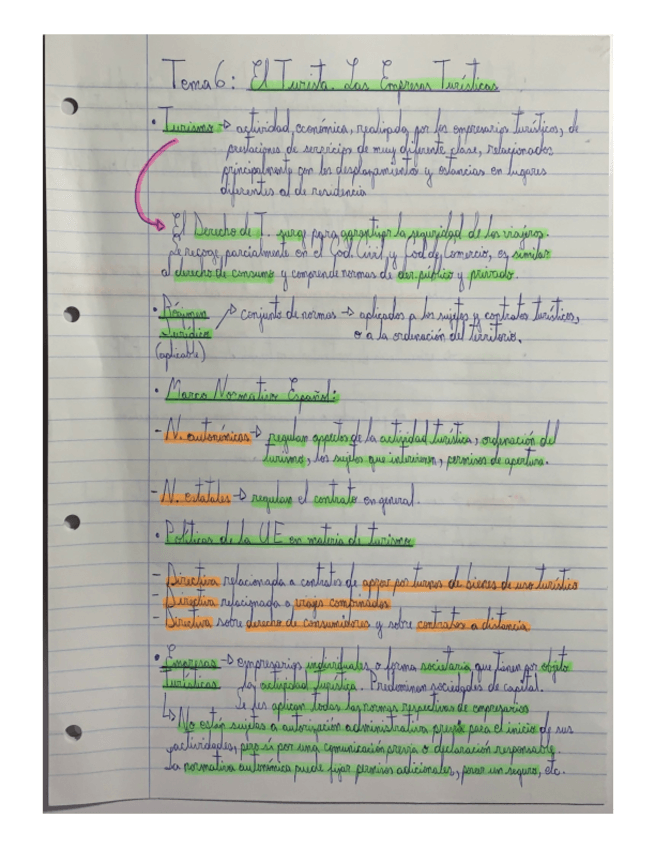 Tema 6: El Turista. Las Empresas Turísticas
• Turismo → actividad económica, realizada por los empresarios turísticos, de
prestaciones de servicios de muy diferente clase, relacionados
principalmente con los desplazamientos y estancias en lugares
diferentes al de residencia
El Derecho de T. surge para garantizar la seguridad de los viajeros.
Se recoge parcialmente en el Cod. Civil y Cod. de Comercio, es similar
al derecho de consumo y comprende normas de der. público y privado.
• Régimen → conjunto de normas → aplicados a los sujetos y contratos turísticos,
Jurídico o a la ordenación del territorio.
(aplicable)
• Marco Normativo Español:
- N. autonómicas → regulan aspectos de la actividad turística, ordenación del
turismo, los sujetos que intervienen, permisos de apertura.
- N. estatales → regulan el contrato en general.
• Políticas de la UE en materia de turismo
- Directiva relacionada a contratos de aprov por turnos de bienes de uso turístico
- Directiva relacionada a viajes combinados
- Directiva sobre derecho de consumidores y sobre contratos a distancia
• Empresas → empresarios individuales, o forma societaria, que tienen por objeto
Turísticas la actividad turística. Predominan sociedades de capital.
Se les aplican todas las normas respectivas de empresarios
↳ No están sujetas a autorización administrativa previa para el inicio de sus
actividades, pero sí por una comunicación previa o declaración responsable.
La normativa autonómica puede fijar permisos adicionales, poner un seguro, etc.